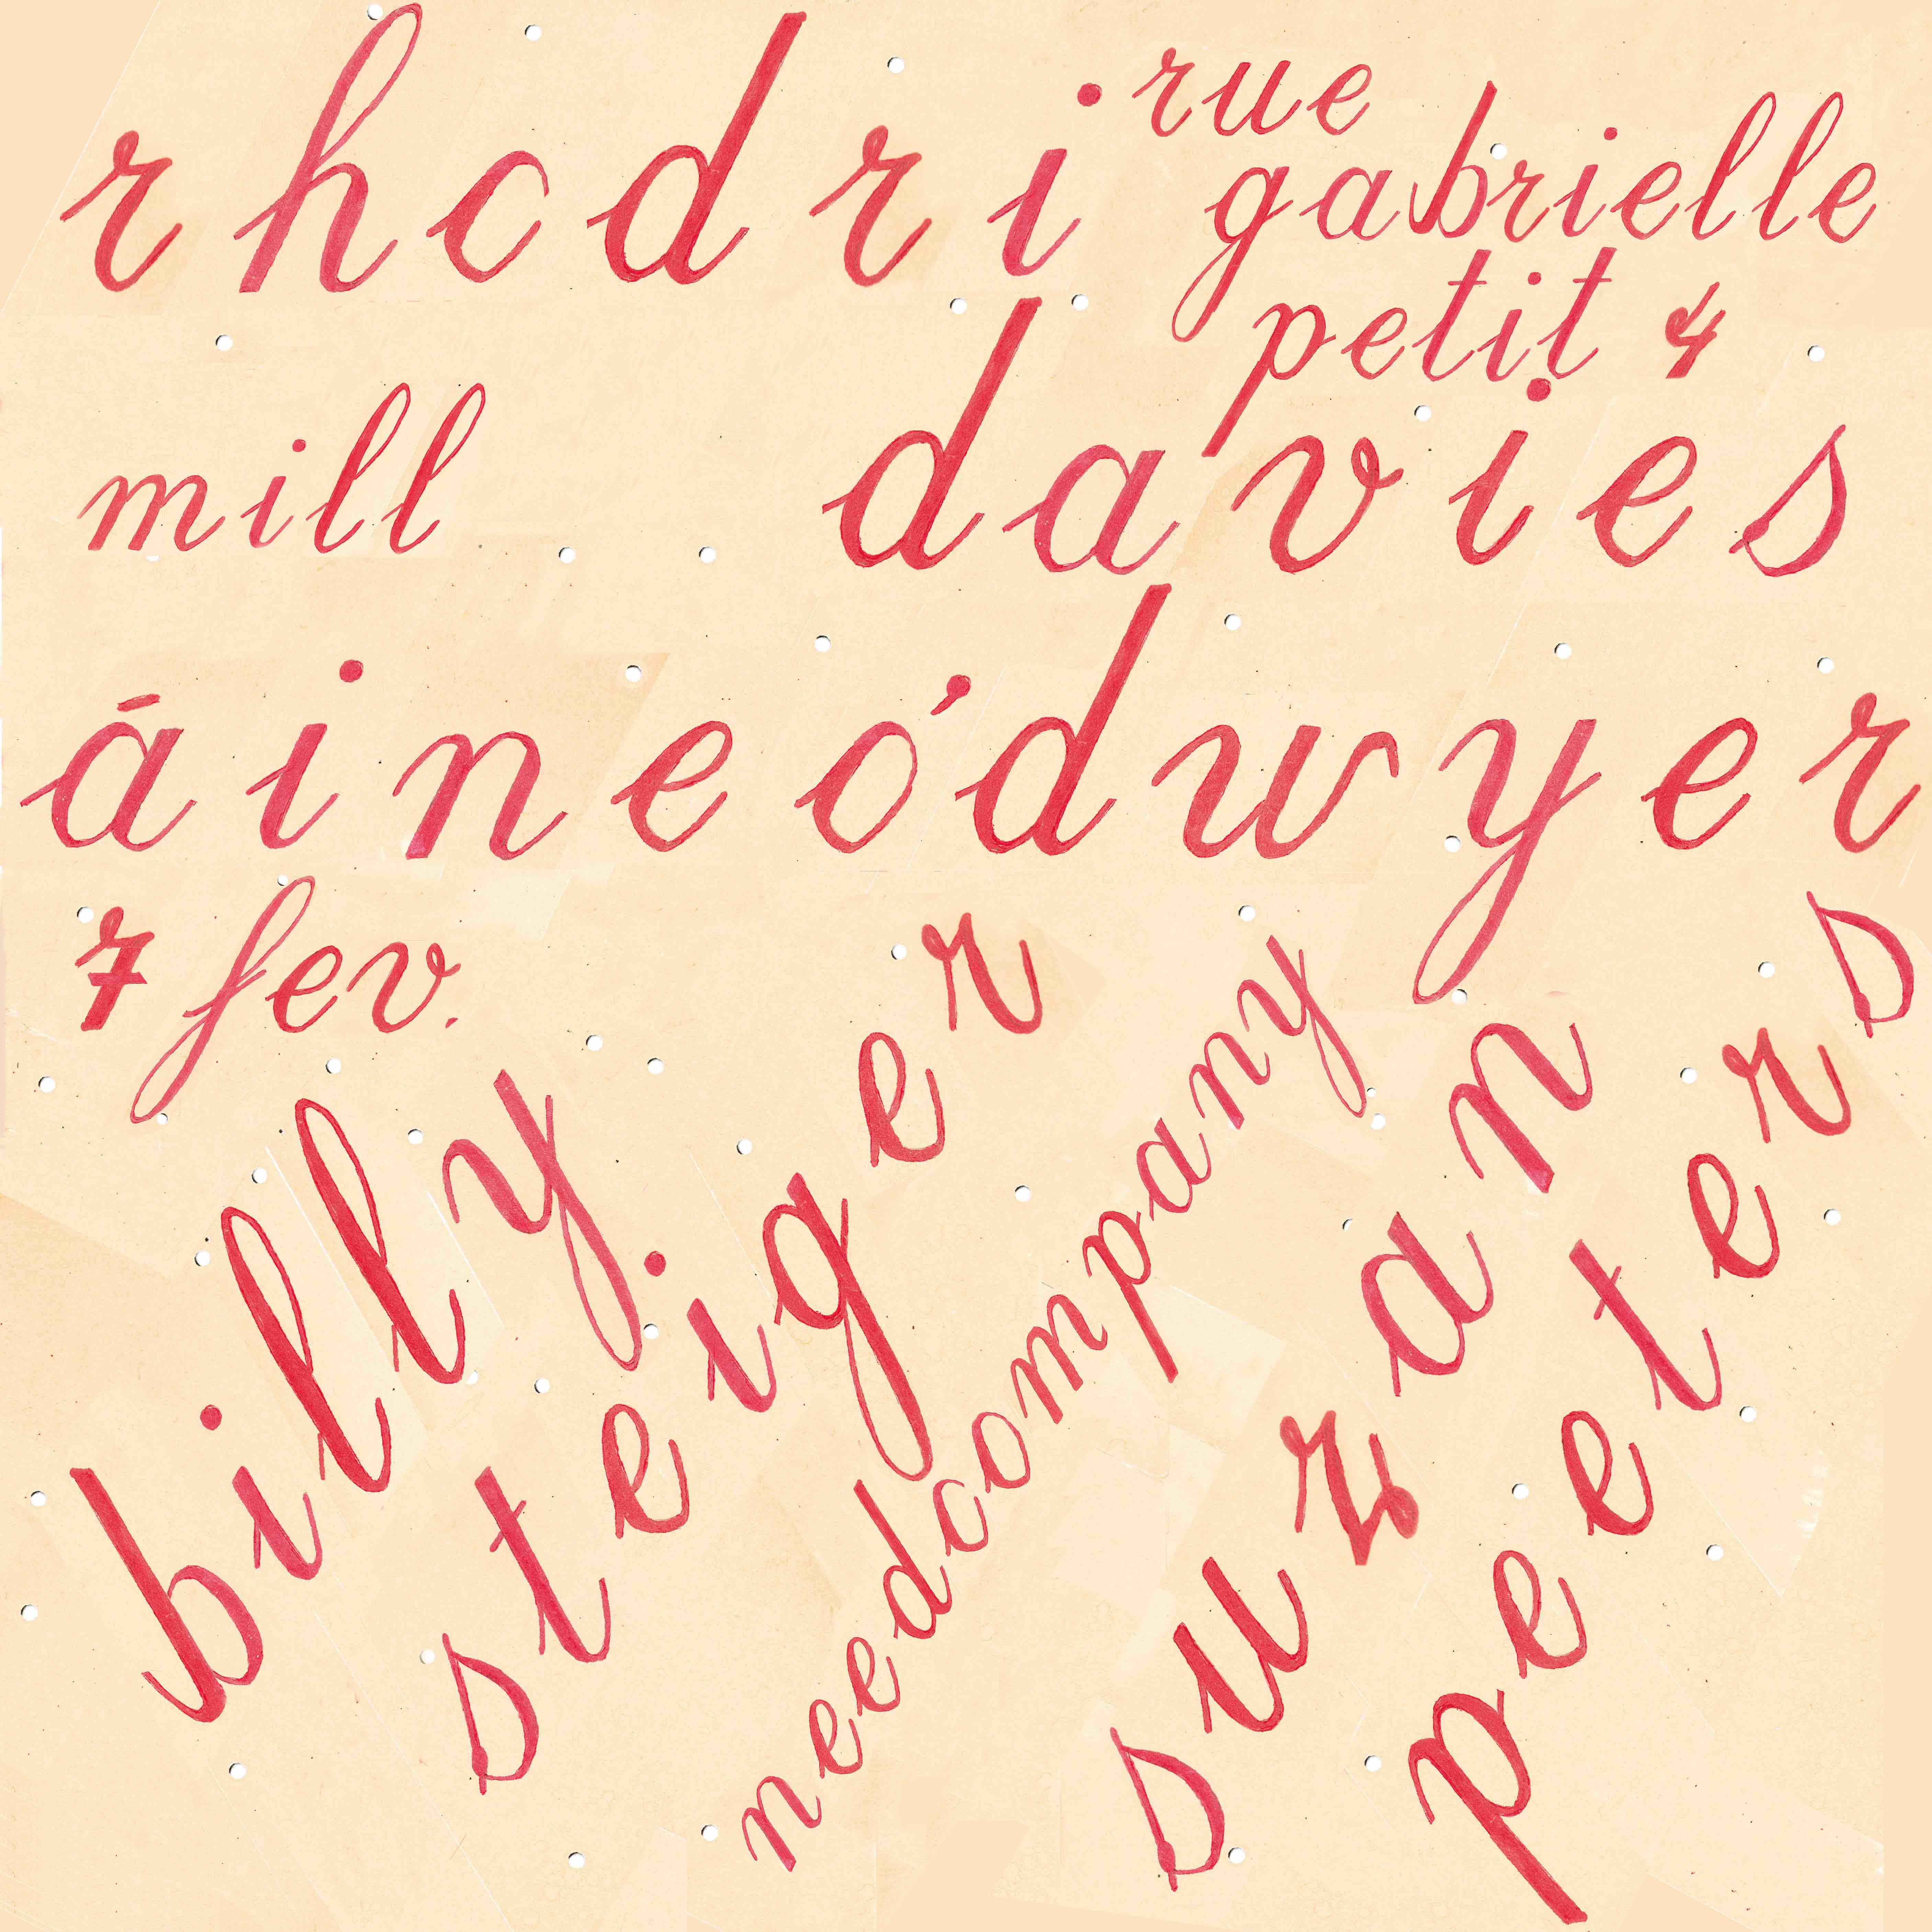 rhcdri
rue
gabrielle
petit 4
mill
davies
áine o'dwyer
7 fev.
billy
steiger
needcompany
suzan
peeters